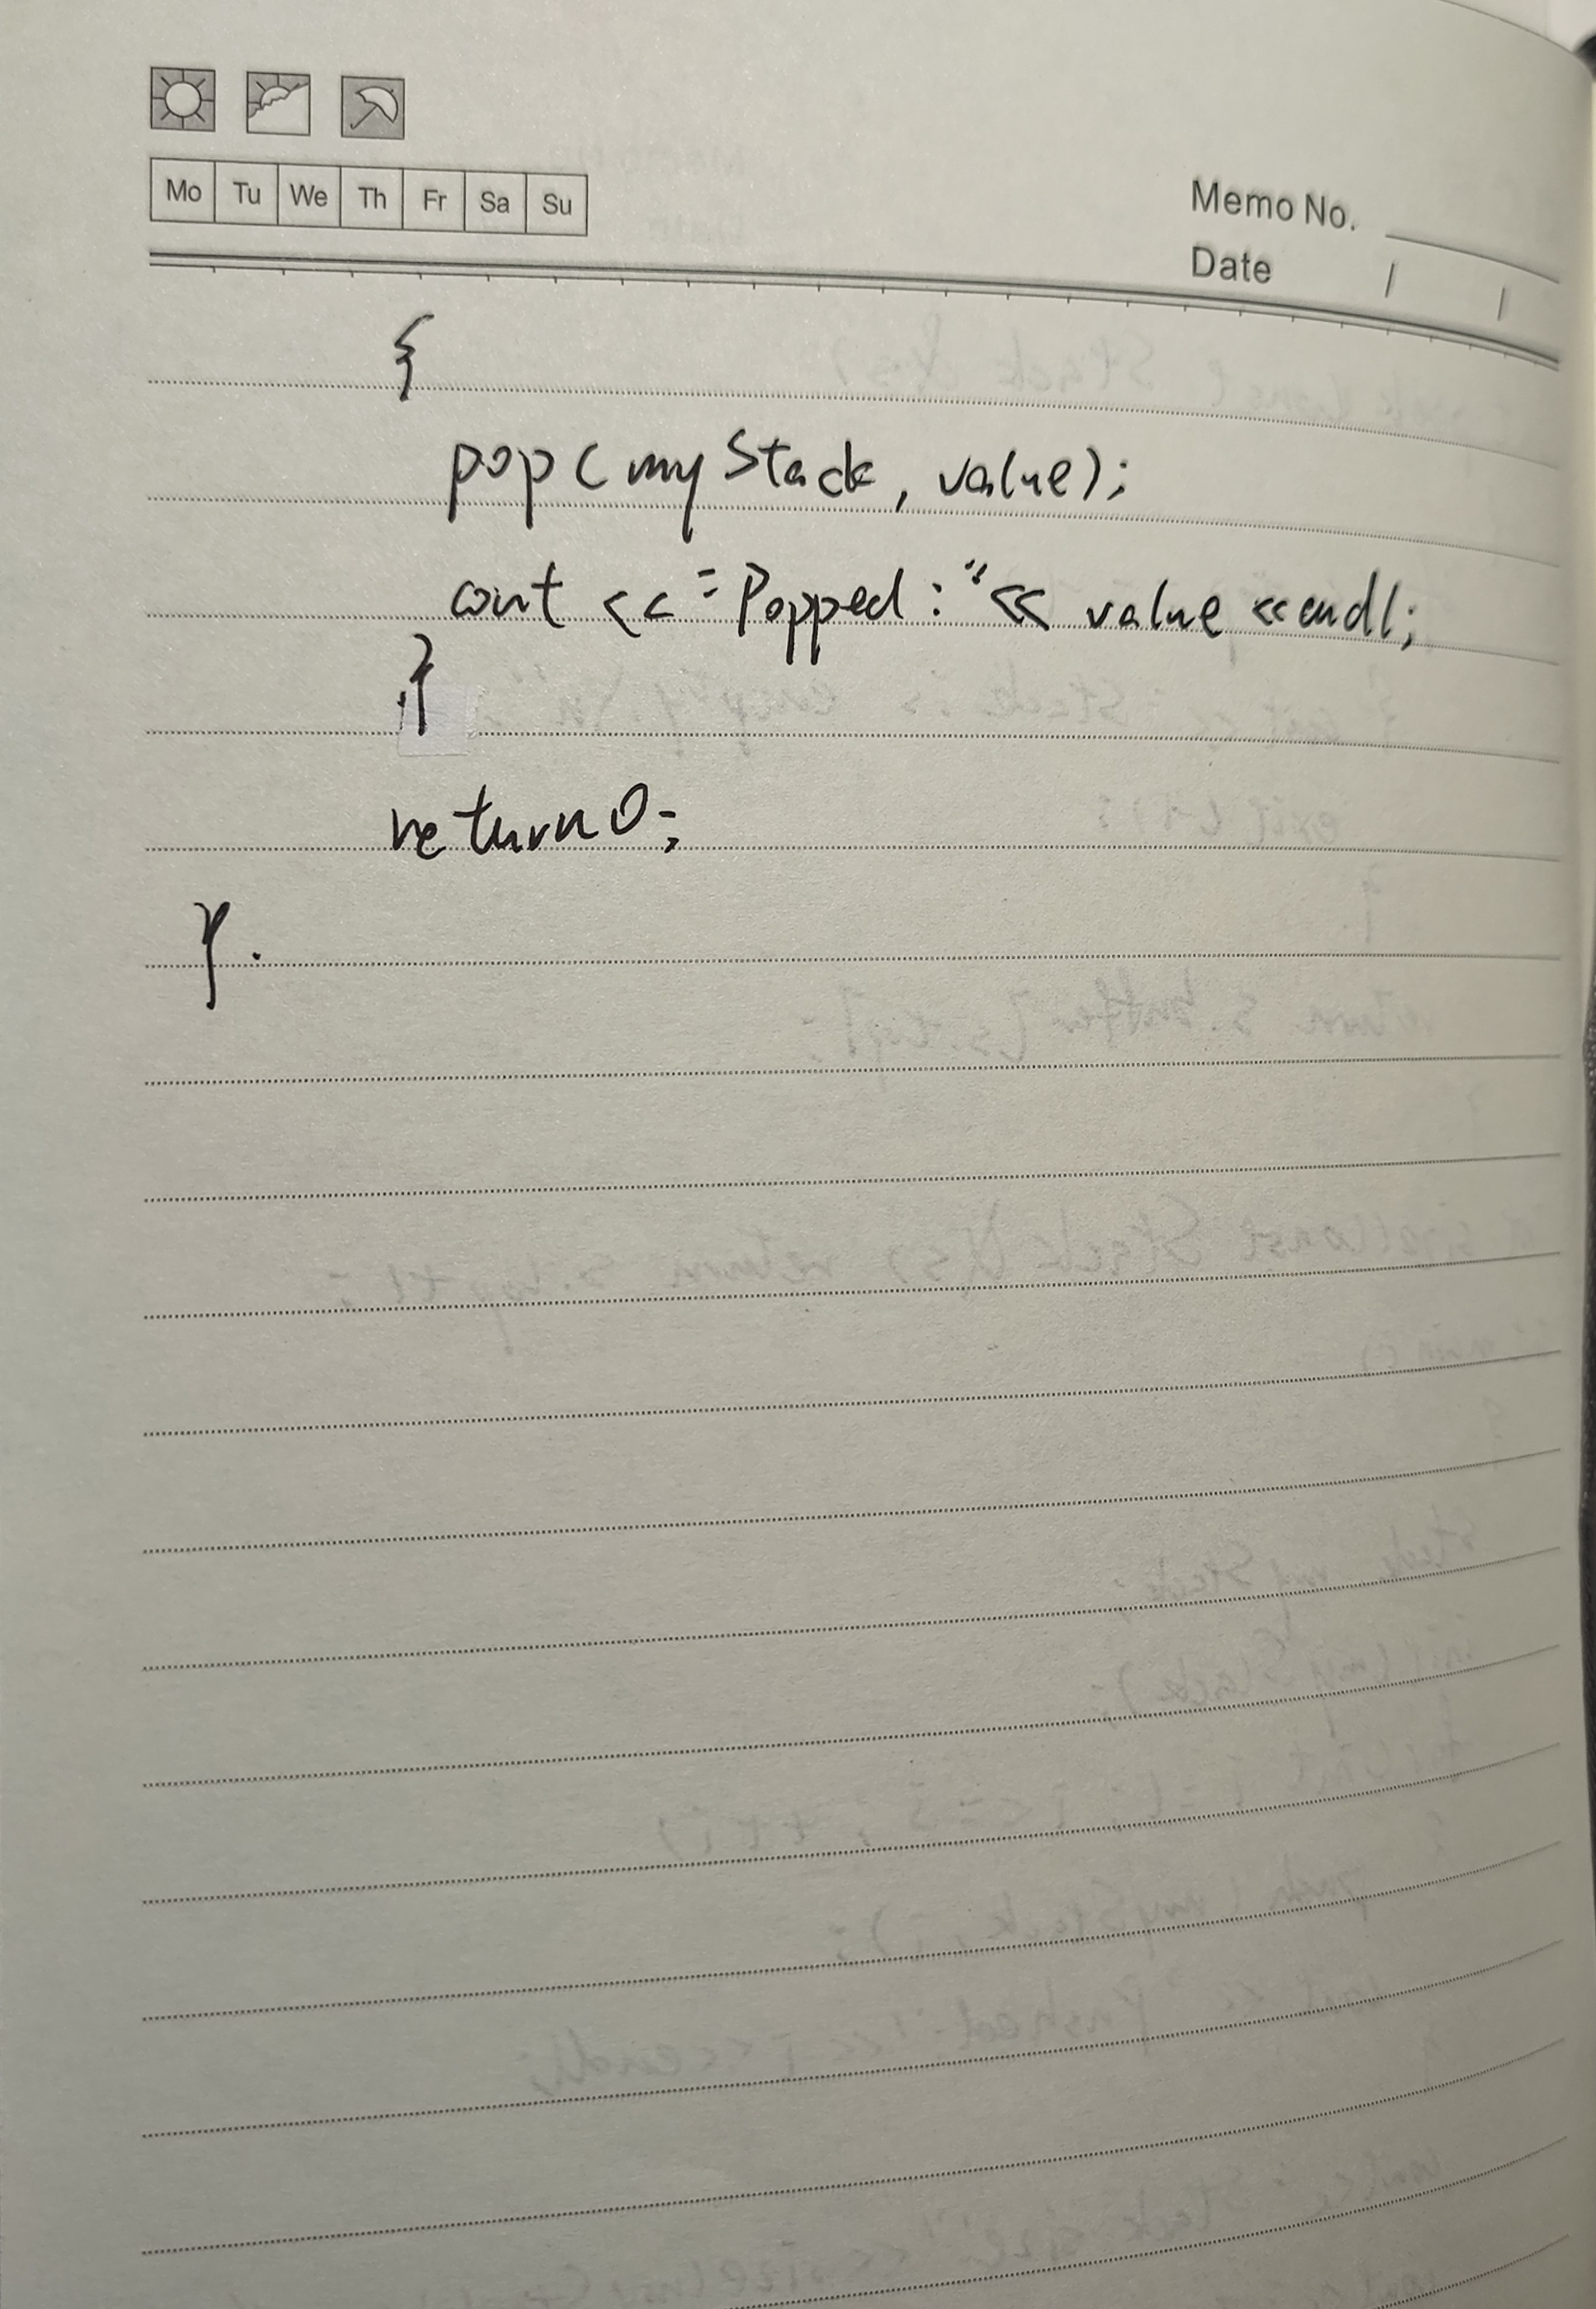 Mo Tu We Th Fr Sa Su
Memo No.
Date / /
{
pop(myStack, value);
cout << "Popped:"<< value <<endl;
}
return0;
}.